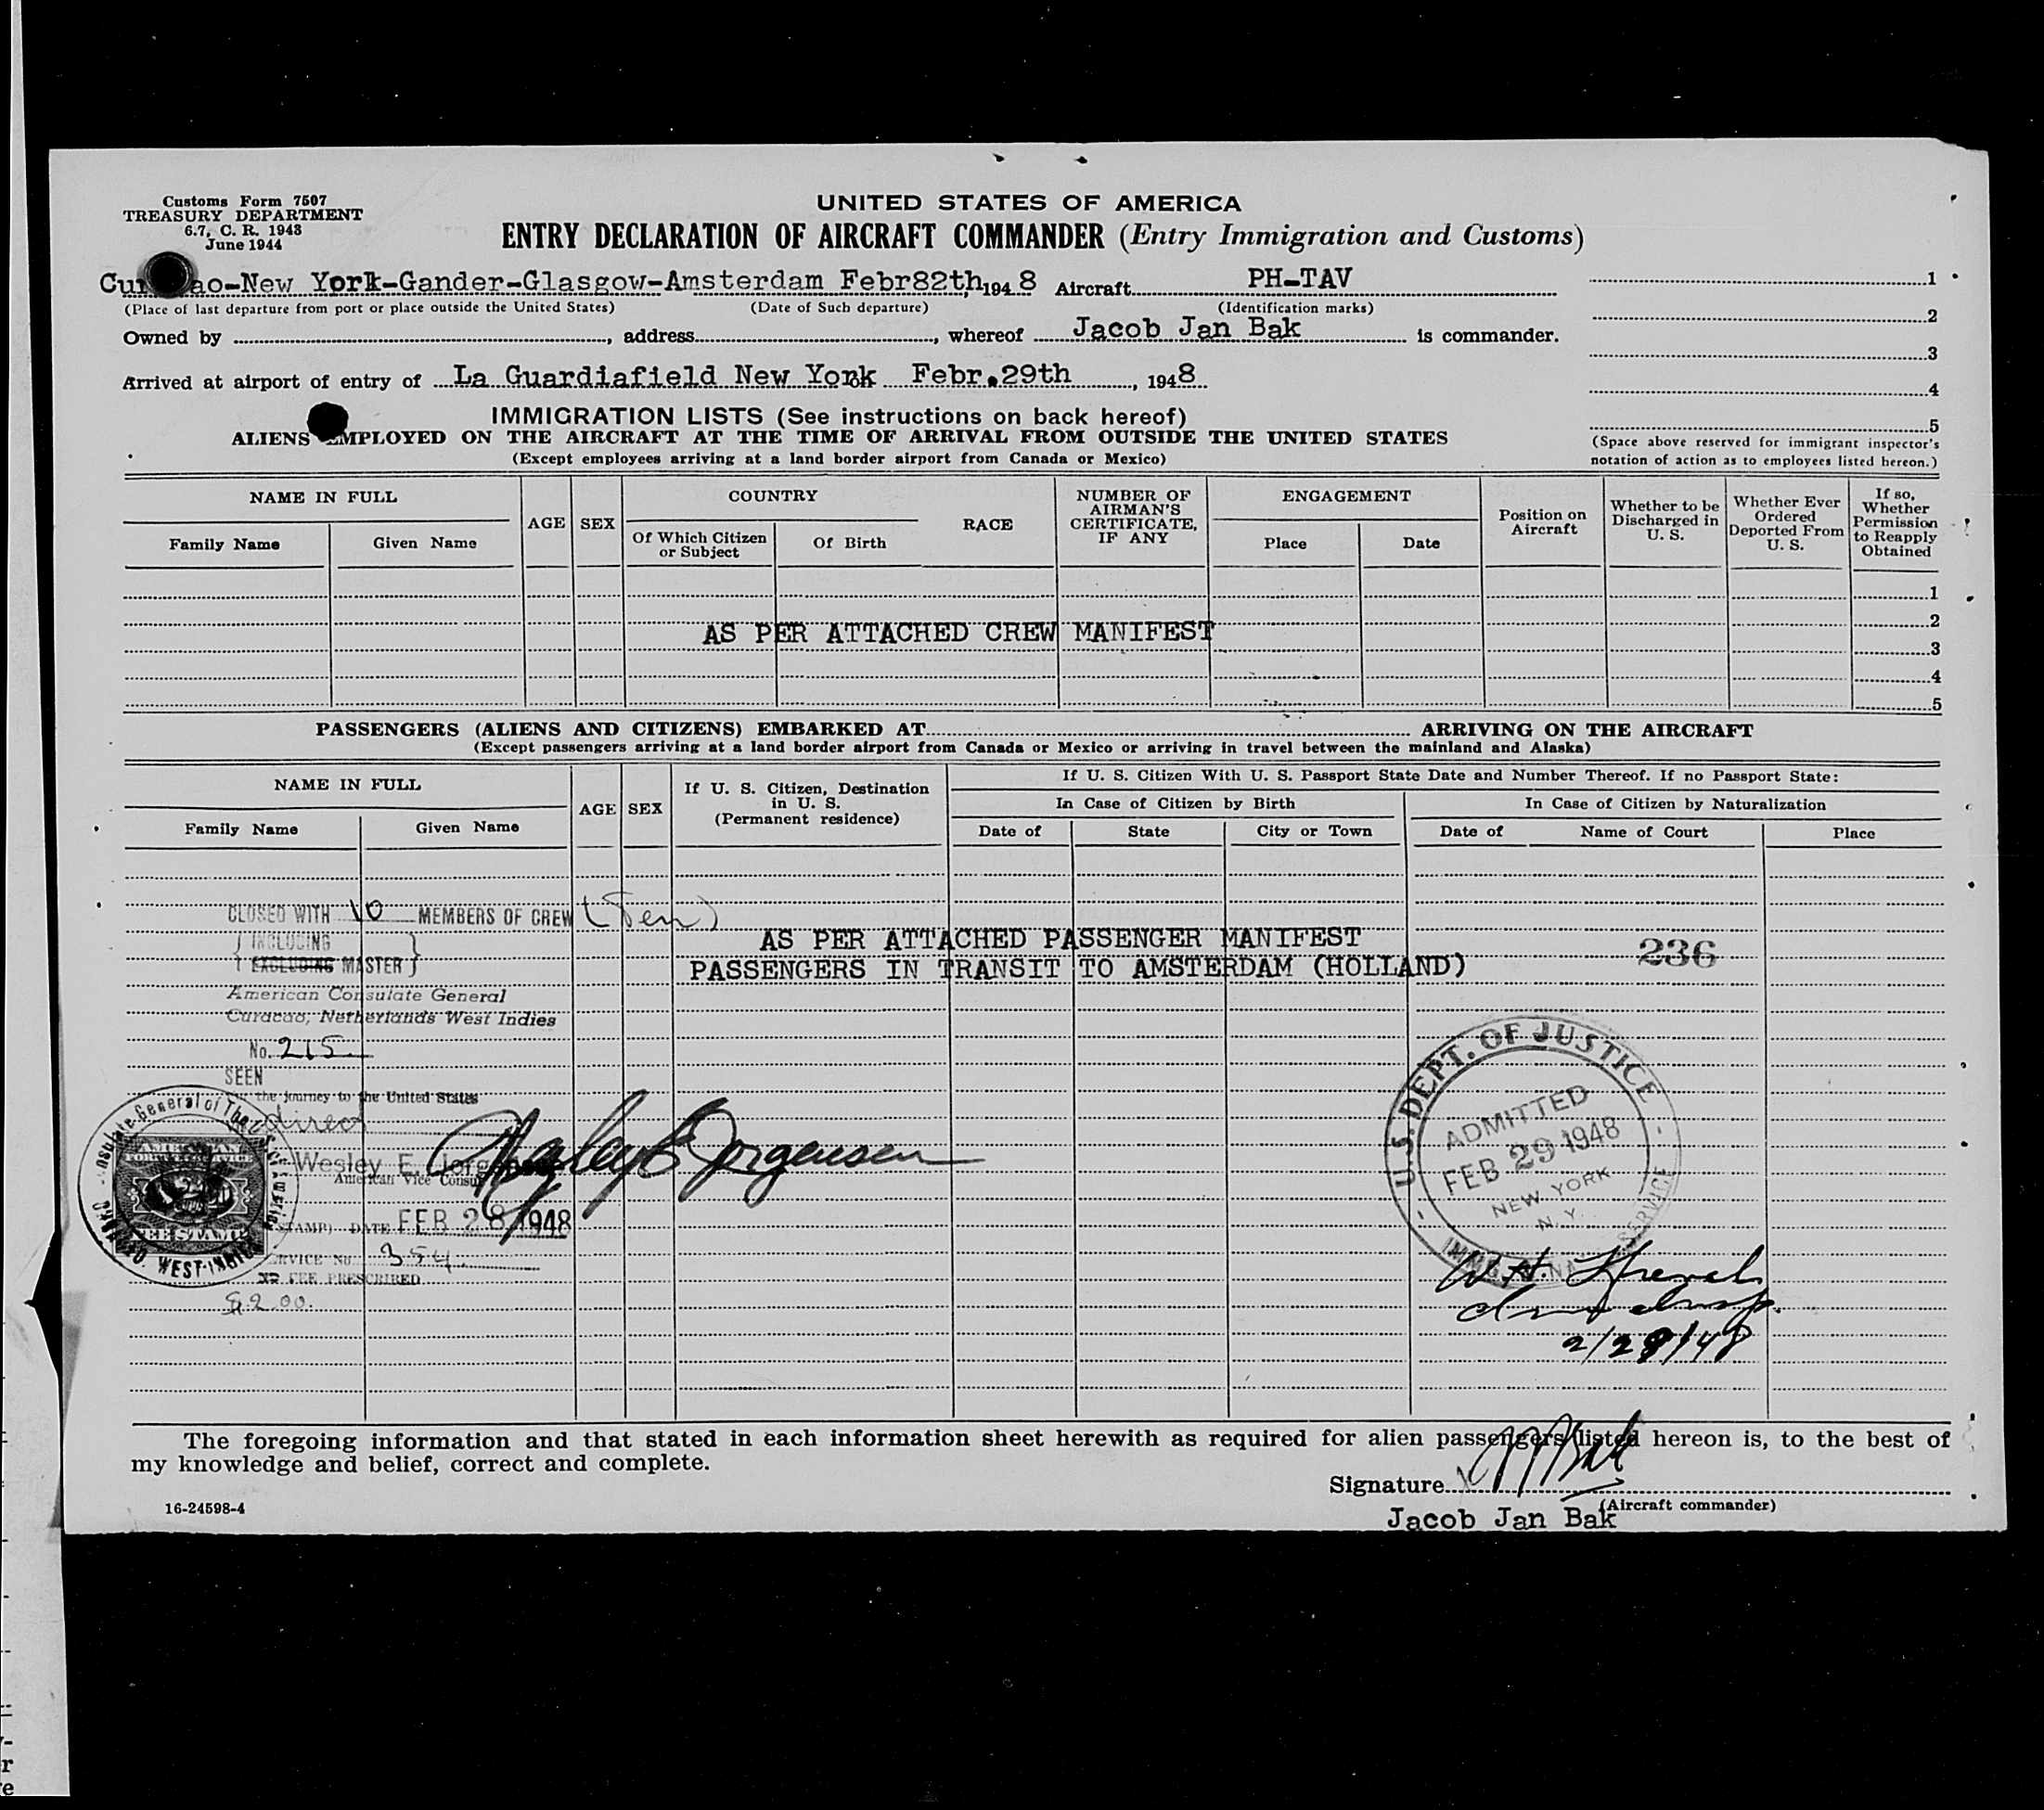 Customs Form 7507
TREASURY DEPARTMENT
6.7, C. R. 1943
June 1944
UNITED STATES OF AMERICA
ENTRY DECLARATION OF AIRCRAFT COMMANDER (Entry Immigration and Customs)
Cu ao-New York-Gander-Glasgow-Amsterdam Febr82th, 1948 Aircraft PH-TAV
(Place of last departure from port or place outside the United States) (Date of Such departure) (Identification marks)
Owned by , address , whereof Jacob Jan Bak is commander.
Arrived at airport of entry of La Guardiafield New York Febr.29th , 1948
1
2
3
4
5
(Space above reserved for immigrant inspector's
notation of action as to employees listed hereon.)
IMMIGRATION LISTS (See instructions on back hereof)
ALIENS EMPLOYED ON THE AIRCRAFT AT THE TIME OF ARRIVAL FROM OUTSIDE THE UNITED STATES
(Except employees arriving at a land border airport from Canada or Mexico)
NAME IN FULL
Family Name
Given Name
AGE
SEX
COUNTRY
Of Which Citizen
or Subject
Of Birth
RACE
NUMBER OF
AIRMAN'S
CERTIFICATE,
IF ANY
ENGAGEMENT
Place
Date
Position on
Aircraft
Whether to be
Discharged in
U. S.
Whether Ever
Ordered
Deported From
U. S.
If so,
Whether
Permission
to Reapply
Obtained
1
2
AS PER ATTACHED CREW MANIFEST
3
4
5
PASSENGERS (ALIENS AND CITIZENS) EMBARKED AT ARRIVING ON THE AIRCRAFT
(Except passengers arriving at a land border airport from Canada or Mexico or arriving in travel between the mainland and Alaska)
NAME IN FULL
Family Name
Given Name
AGE
SEX
If U. S. Citizen, Destination
in U. S.
(Permanent residence)
If U. S. Citizen With U. S. Passport State Date and Number Thereof. If no Passport State:
In Case of Citizen by Birth
Date of
State
City or Town
In Case of Citizen by Naturalization
Date of
Name of Court
Place
CLOSED WITH 10 MEMBERS OF CREW (Ten)
INCLUDING
EXCLUDING MASTER
AS PER ATTACHED PASSENGER MANIFEST
PASSENGERS IN TRANSIT TO AMSTERDAM (HOLLAND)
236
American Consulate General
Curacao, Netherlands West Indies
No. 215
SEEN
the journey to the United States
direct
Wesley E. Jorgensen
Wesley E Jorgensen
American Vice Consul
(STAMP) DATE FEB 28 1948
SERVICE No. 354.
FEE PRESCRIBED
$2.00.
AMERICAN
FEE STAMP
WEST-INDIES
U.S. DEPT. OF JUSTICE
ADMITTED
FEB 29 1948
NEW YORK
N. Y.
SERVICE
W. H. French
Imm Insp.
2/29/48
The foregoing information and that stated in each information sheet herewith as required for alien passengers listed hereon is, to the best of
my knowledge and belief, correct and complete.
Signature JJBak
(Aircraft commander)
Jacob Jan Bak
16-24598-4